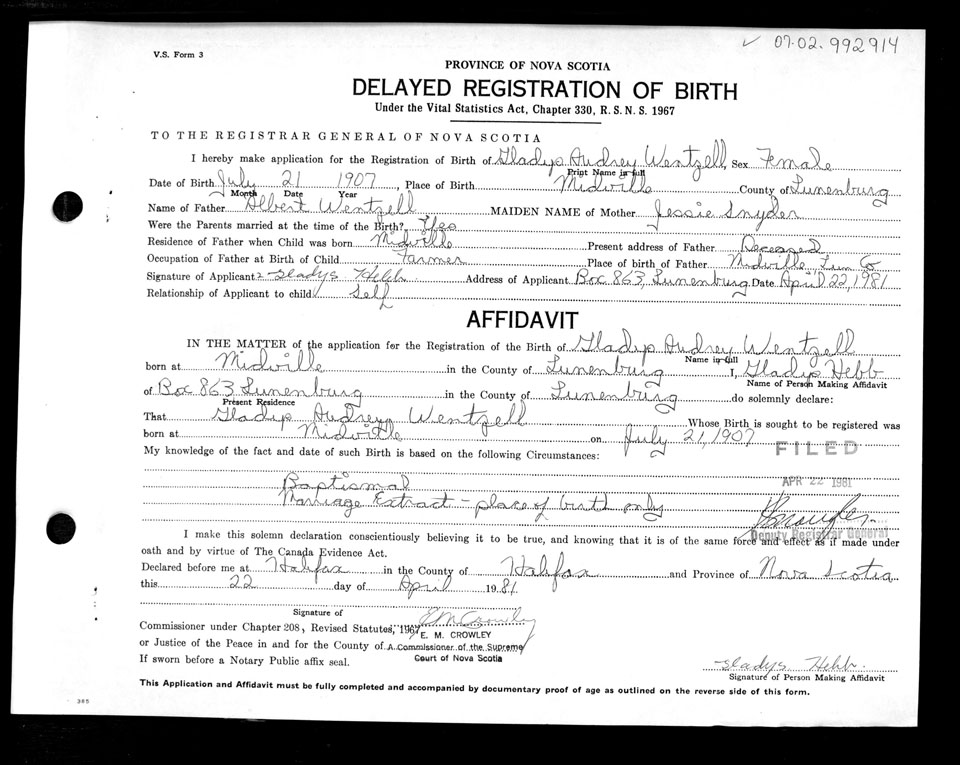 ✓ 07-02-992914
V.S. Form 3
PROVINCE OF NOVA SCOTIA
DELAYED REGISTRATION OF BIRTH
Under the Vital Statistics Act, Chapter 330, R. S. N. S. 1967
TO THE REGISTRAR GENERAL OF NOVA SCOTIA
I hereby make application for the Registration of Birth of Gladys Audrey Wentzell, Sex Female
Print Name in full
Date of Birth July 21 1907, Place of Birth Midville County of Lunenburg
Month Date Year
Name of Father Albert Wentzell MAIDEN NAME of Mother Jessie Snyder
Were the Parents married at the time of the Birth? Yes
Residence of Father when Child was born Midville Present address of Father Deceased
Occupation of Father at Birth of Child Farmer Place of birth of Father Midville Lun Co
Signature of Applicant Gladys Hebb Address of Applicant Box 863, Lunenburg Date April 22, 1981
Relationship of Applicant to child Self
AFFIDAVIT
IN THE MATTER of the application for the Registration of the Birth of Gladys Audrey Wentzell
Name in full
born at Midville in the County of Lunenburg I, Gladys Hebb
Name of Person Making Affidavit
of Box 863 Lunenburg in the County of Lunenburg do solemnly declare:
Present Residence
That Gladys Audrey Wentzell Whose Birth is sought to be registered was
born at Midville on July 21, 1907
FILED
My knowledge of the fact and date of such Birth is based on the following Circumstances:
APR 22 1981
Baptismal
Marriage Extract - place of birth only
Deputy Registrar General
I make this solemn declaration consciously believing it to be true, and knowing that it is of the same force and effect as if made under
oath and by virtue of The Canada Evidence Act.
Declared before me at Halifax in the County of Halifax and Province of Nova Scotia
this 22 day of April 1981
Signature of E M Crowley
Commissioner under Chapter 208, Revised Statutes, 1967
E. M. CROWLEY
or Justice of the Peace in and for the County of A Commissioner of the Supreme
Court of Nova Scotia
If sworn before a Notary Public affix seal.
Gladys Hebb
Signature of Person Making Affidavit
This Application and Affidavit must be fully completed and accompanied by documentary proof of age as outlined on the reverse side of this form.
385